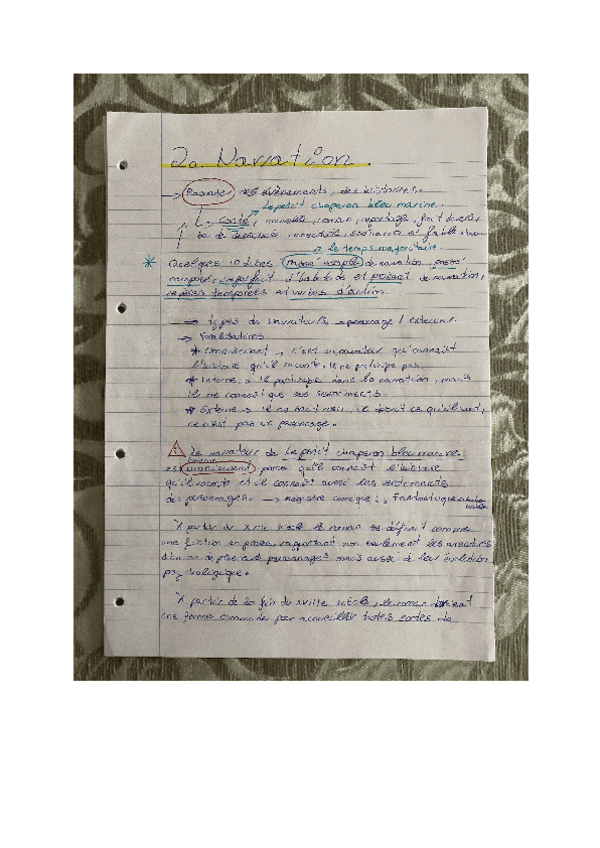 2. Narration.
→ Raconter des évènements, des histoires.
Le petit chaperon bleu marine.
Conte, nouvelle, roman, reportage, fait divers
de anecdote, scénario et fable
→ le temps majoritaire.
* Quelques indices (passé simple) de narration, passé
composé, imparfait d'habitude et présent de narration,
repères temporels et verbes d'action.
→ types de narrateurs → personnage / extérieur.
→ Focalisations
* Omniscient → c'est un narrateur qui connaît
l'histoire qu'il raconte, il ne participe pas.
* Interne → il participe dans la narration, mais
il ne connaît que ses sentiments.
* Externe → il ne sait rien, il décrit ce qu'il voit,
ce n'est pas un personnage.
! Le narrateur de Le petit chaperon bleu marine
est omniscient parce qu'il connaît l'histoire
qu'il raconte et il connaît aussi les sentiments
des personnages. → Registre comique : Fantastique
À partir du XVIIe siècle le roman se définit comme
une fiction en prose, rapportant non seulement les aventures
d'un ou de plusieurs personnages mais aussi à leur évolution
psychologique.
À partir de la fin du XVIIIe siècle, le roman devient
une forme commode pour accueillir toutes sortes de